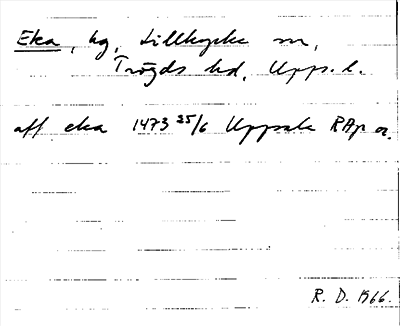 Eka, hg, Lillkyrka sn,
Trögds hd, Upps. l.
aff eka 1473 25/6 Uppsala RAp or.
R. D. 1966.